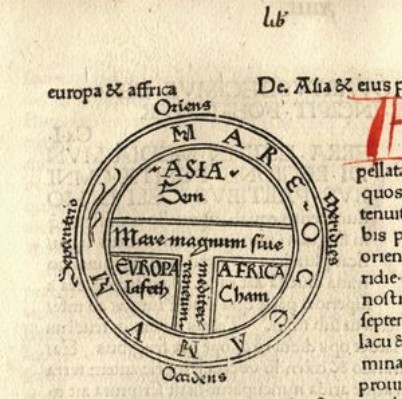 lib
europa & affrica
De. Asia & eius p
Oriens
MARE OCEANVM
ASIA
Sem
Septentrio
Meridies
Mare magnum siue
mediter
raneum
EVROPA
Iafeth
AFRICA
Cham
Occidens
pellata
quos
tenuit
bis p
orien
ridie-
nostr
septen
lacu &
mina
prouin